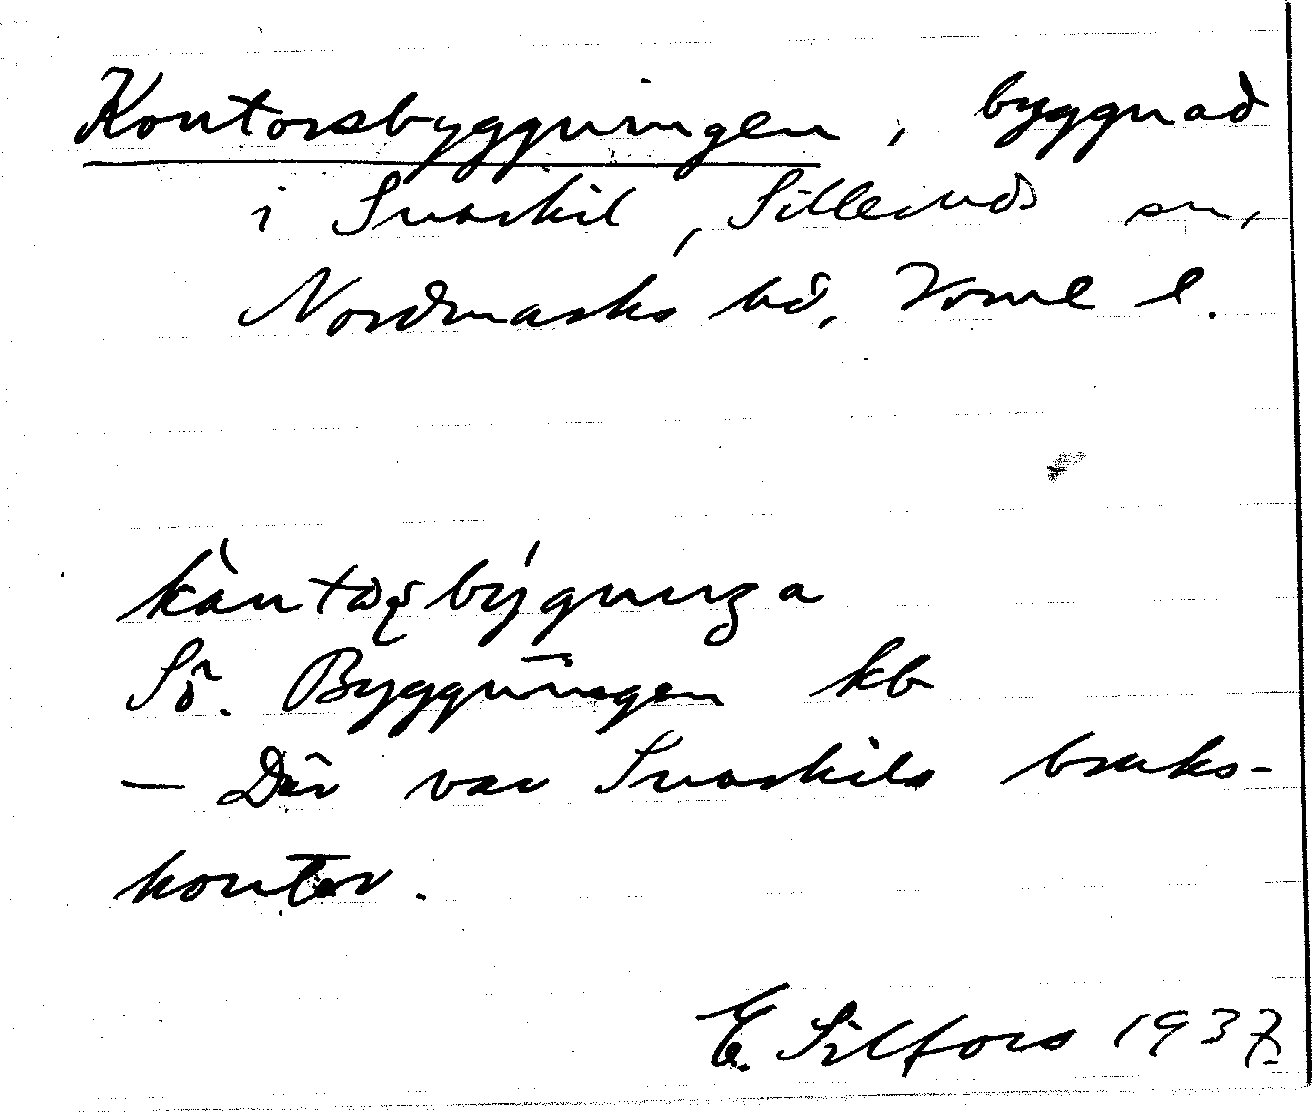 Kontorsbyggningen, byggnad
i Svaskil, Silleruds sn,
Nordmarks hd, Värml l.
kàntǝʂbýgnıŋa
Sö. Byggningen kb
— Där var Svaskils bruks-
kontor.
E. Silfors 1937